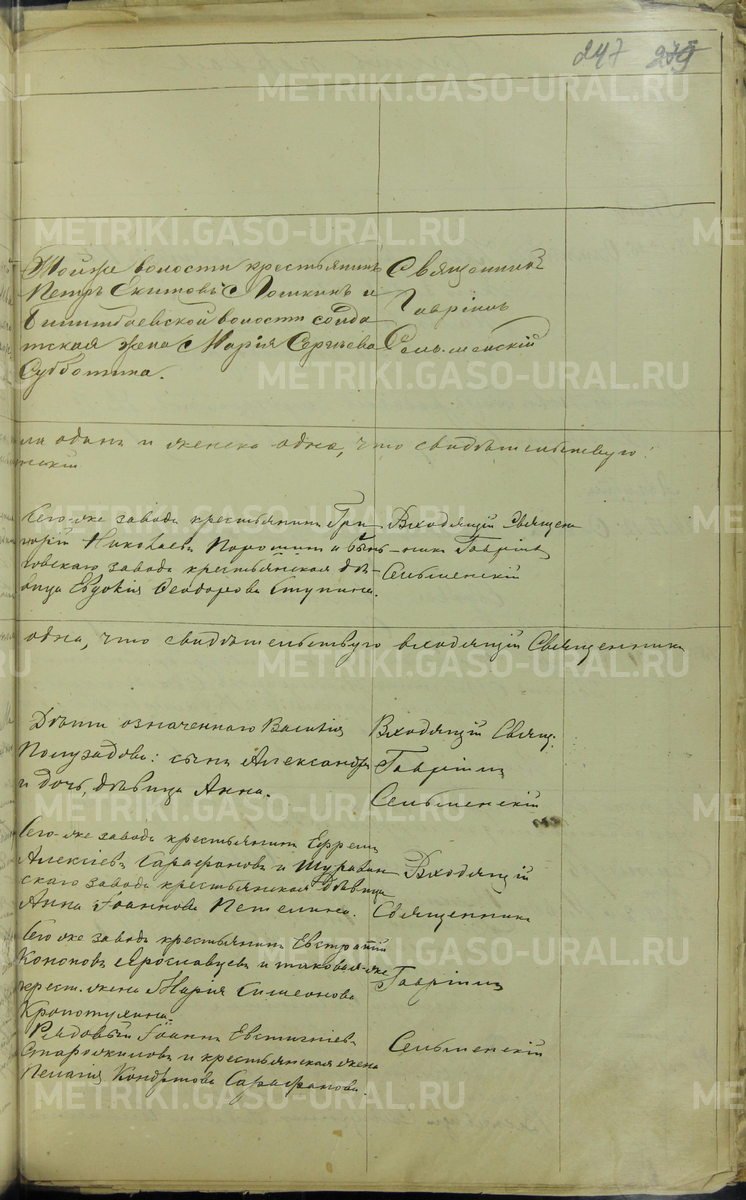 247 279
Тойже волости крестьянинъ
Петръ Екимовъ Лошкинъ и
Билимбаевской волости солда
тская жена Марія Сергѣева
Субботина.
Священникъ
Гавріилъ
Сельменскій
ла одинъ и женска одна, что свидѣтельствую:
нскій
Сего-же завода крестьянинъ Гри
горій Николаевъ Порошинъ и
говскаго завода крестьянская дѣ-
вица Евдокія Ѳеодорова Ступина.
Входящій Священ
никъ Гавріилъ
Сельменскій
одна, что свидѣтельствую входящій Священникъ
Дѣти означеннаго Василія
Полузадова: сынъ Александръ
и дочь, дѣвица Анна.
Входящій Свящ:
Гавріилъ
Сельменскій
Сего-же завода крестьянинъ Ефремъ
Алексіевъ Сарафановъ и Шуралин
скаго завода крестьянская дѣвица
Анна Іоаннова Петелина.
Входящій
Священникъ
Сего же завода крестьянинъ Евстратій
Кононовъ Ярославцевъ и таковая-же
крест. жена Марія Симеонова
Кропотухина.
Гавріилъ
Рядовый Іоаннъ Евстигніевъ
Старожиловъ и крестьянская жена
Пелагія Кондратова Сарафанова.
Сельменскій
METRIKI.GASO-URAL.RU